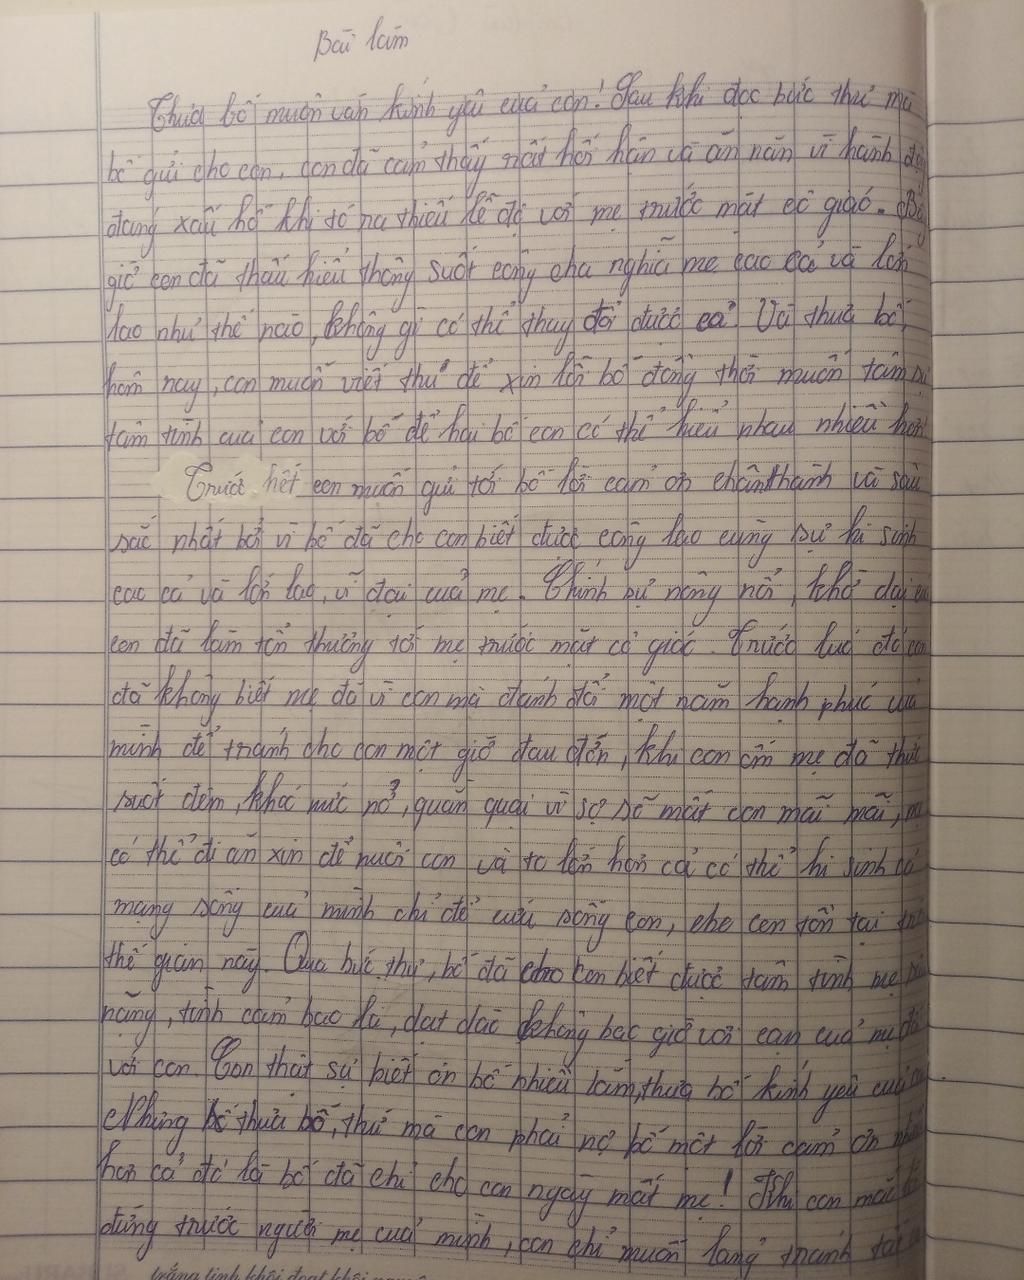 Bài làm
Thưa bố muôn vàn kính yêu của con! Sau khi đọc bức thư mà
bố gửi cho con, con đã cảm thấy rất hối hận và ăn năn vì hành
đáng xấu hổ khi tỏ ra thiếu lễ độ với mẹ trước mặt cô giáo. Bây
giờ con đã thấu hiểu thông suốt công cha nghĩa mẹ cao cả và lớn
lao như thế nào, không gì có thể thay đổi được cả. Và thưa bố,
hôm nay, con muốn viết thư để xin lỗi bố đồng thời muốn tâm sự
tâm tình của con với bố để hai bố con có thể hiểu nhau nhiều hơn
Trước hết con muốn gửi tới bố lời cảm ơn chân thành và sâu
sắc nhất bởi vì bố đã cho con biết được công lao cùng sự hi sinh
cao cả và lớn lao, vĩ đại của mẹ. Chính sự nông nổi, khờ dại của
con đã làm tổn thương tới mẹ trước mặt cô giáo. Trước lúc đó con
đã không biết mẹ đã vì con mà đánh đổi một năm hạnh phúc của
mình để tránh cho con một giờ đau đớn, khi con ốm mẹ đã thức
suốt đêm, khóc nức nở, quằn quại vì sợ sẽ mất con mãi mãi, mẹ
có thể đi ăn xin để nuôi con và to lớn hơn cả có thể hi sinh cả
mạng sống của mình chỉ để cứu sống con, cho con tồn tại trên
thế gian này. Qua bức thư, bố đã cho con biết được tâm tình mẹ sâu
nặng, tình cảm bao la, dạt dào không bao giờ vơi cạn của mẹ đối
với con. Con thật sự biết ơn bố nhiều lắm, thưa bố kính yêu của con.
Nhưng thưa bố, thứ mà con phải nợ bố một lời cảm ơn nhiều
hơn cả đó là bố đã chỉ cho con ngày mất mẹ! Khi con mắc lỗi
đứng trước người mẹ của mình, con chỉ muốn lảng tránh tất cả
trắng tinh khôi